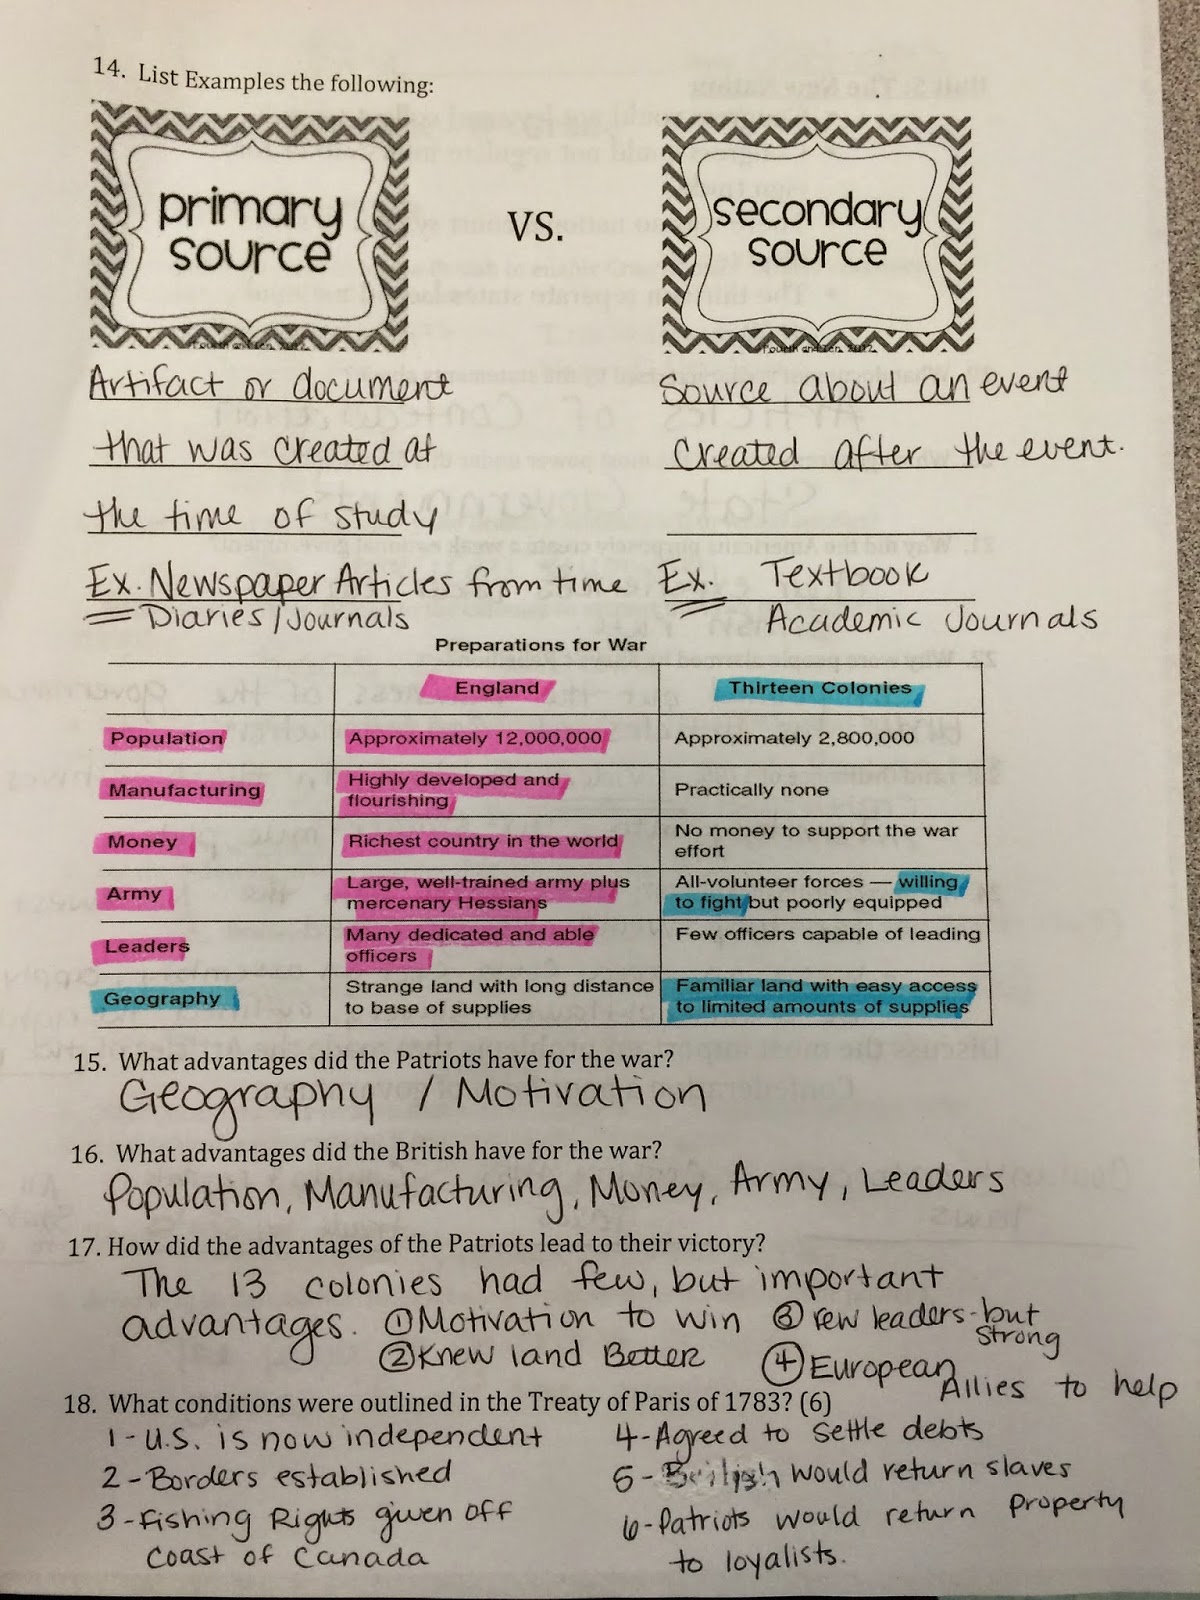 14. List Examples the following:
primary
source
VS.
secondary
source
Fourth and Ten 2012
Fourth and Ten 2012
Artifact or document
that was created at
the time of study
Ex. Newspaper Articles from time
Diaries / Journals
Source about an event
created after the event.
Ex. Textbook
Academic Journals
Preparations for War
England Thirteen Colonies
Population Approximately 12,000,000 Approximately 2,800,000
Manufacturing Highly developed and flourishing Practically none
Money Richest country in the world No money to support the war effort
Army Large, well-trained army plus mercenary Hessians All-volunteer forces — willing to fight but poorly equipped
Leaders Many dedicated and able officers Few officers capable of leading
Geography Strange land with long distance to base of supplies Familiar land with easy access to limited amounts of supplies
15. What advantages did the Patriots have for the war?
Geography / Motivation
16. What advantages did the British have for the war?
Population, Manufacturing, Money, Army, Leaders
17. How did the advantages of the Patriots lead to their victory?
The 13 colonies had few, but important
advantages. ① Motivation to win ③ Few leaders - but strong
② Knew land Better ④ European Allies to help
18. What conditions were outlined in the Treaty of Paris of 1783? (6)
1 - U.S. is now independent
2 - Borders established
3 - Fishing Rights given off
coast of Canada
4 - Agreed to settle debts
5 - British would return slaves
6 - Patriots would return property
to loyalists.